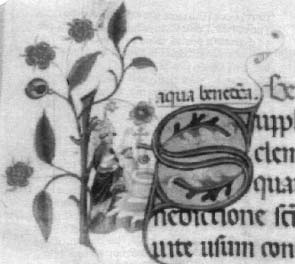 aqua benedictã. Be
Suppl
clem
qua
nedictione scī
uite usum con